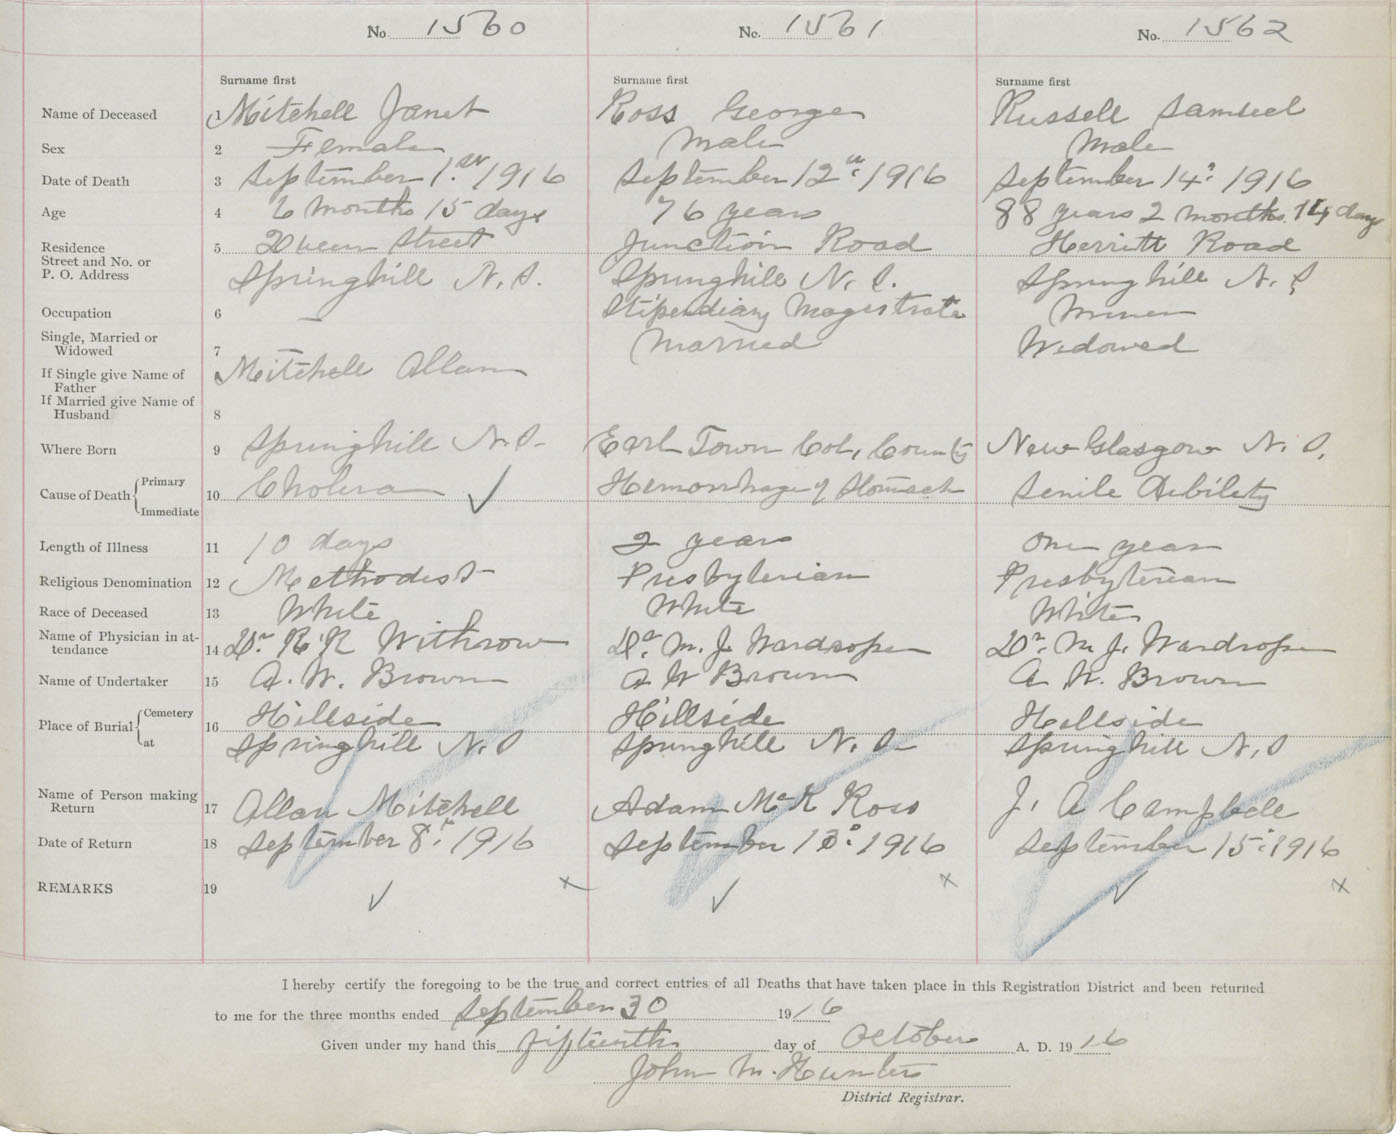 No. 1560 No. 1561 No. 1562
Surname first Surname first Surname first
Name of Deceased 1 Mitchell Janet Ross George Russell Samuel
Sex 2 Female Male Male
Date of Death 3 September 1st 1916 September 12th 1916 September 14" 1916
Age 4 6 months 15 days 76 years 88 years 2 months 14 days
Residence 5 Queen Street Junction Road Herritt Road
Street and No. or
P. O. Address Springhill N.S. Springhill N.S. Springhill N.S
Occupation 6 — Stipendiary Magistrate Miner
Single, Married or
Widowed 7 — Married Widowed
If Single give Name of
Father Mitchell Allan
If Married give Name of
Husband 8
Where Born 9 Springhill N.S. Earl Town Col, County New Glasgow N.S.
Cause of Death { Primary
10 Cholera ✓ Hemorrhage of Stomach Senile Debility
Immediate
Length of Illness 11 10 days 2 years One year
Religious Denomination 12 Methodist Presbyterian Presbyterian
Race of Deceased 13 White White White
Name of Physician in at-
tendance 14 Dr R.R Withrow Dr. M. J. Wardroper Dr. M. J. Wardroper
Name of Undertaker 15 A. W. Brown A W Brown A W. Brown
Place of Burial { Cemetery 16 Hillside Hillside Hillside
at Springhill N.S Springhill N.S. Springhill N.S
Name of Person making
Return 17 Allan Mitchell Adam McK Ross J. A Campbell
Date of Return 18 September 8th 1916 September 13" 1916 September 15" 1916
REMARKS 19 ✓ x ✓ x ✓ x
I hereby certify the foregoing to be the true and correct entries of all Deaths that have taken place in this Registration District and been returned
to me for the three months ended September 30 1916
Given under my hand this fifteenth day of October A. D. 1916
John M. Hunter
District Registrar.